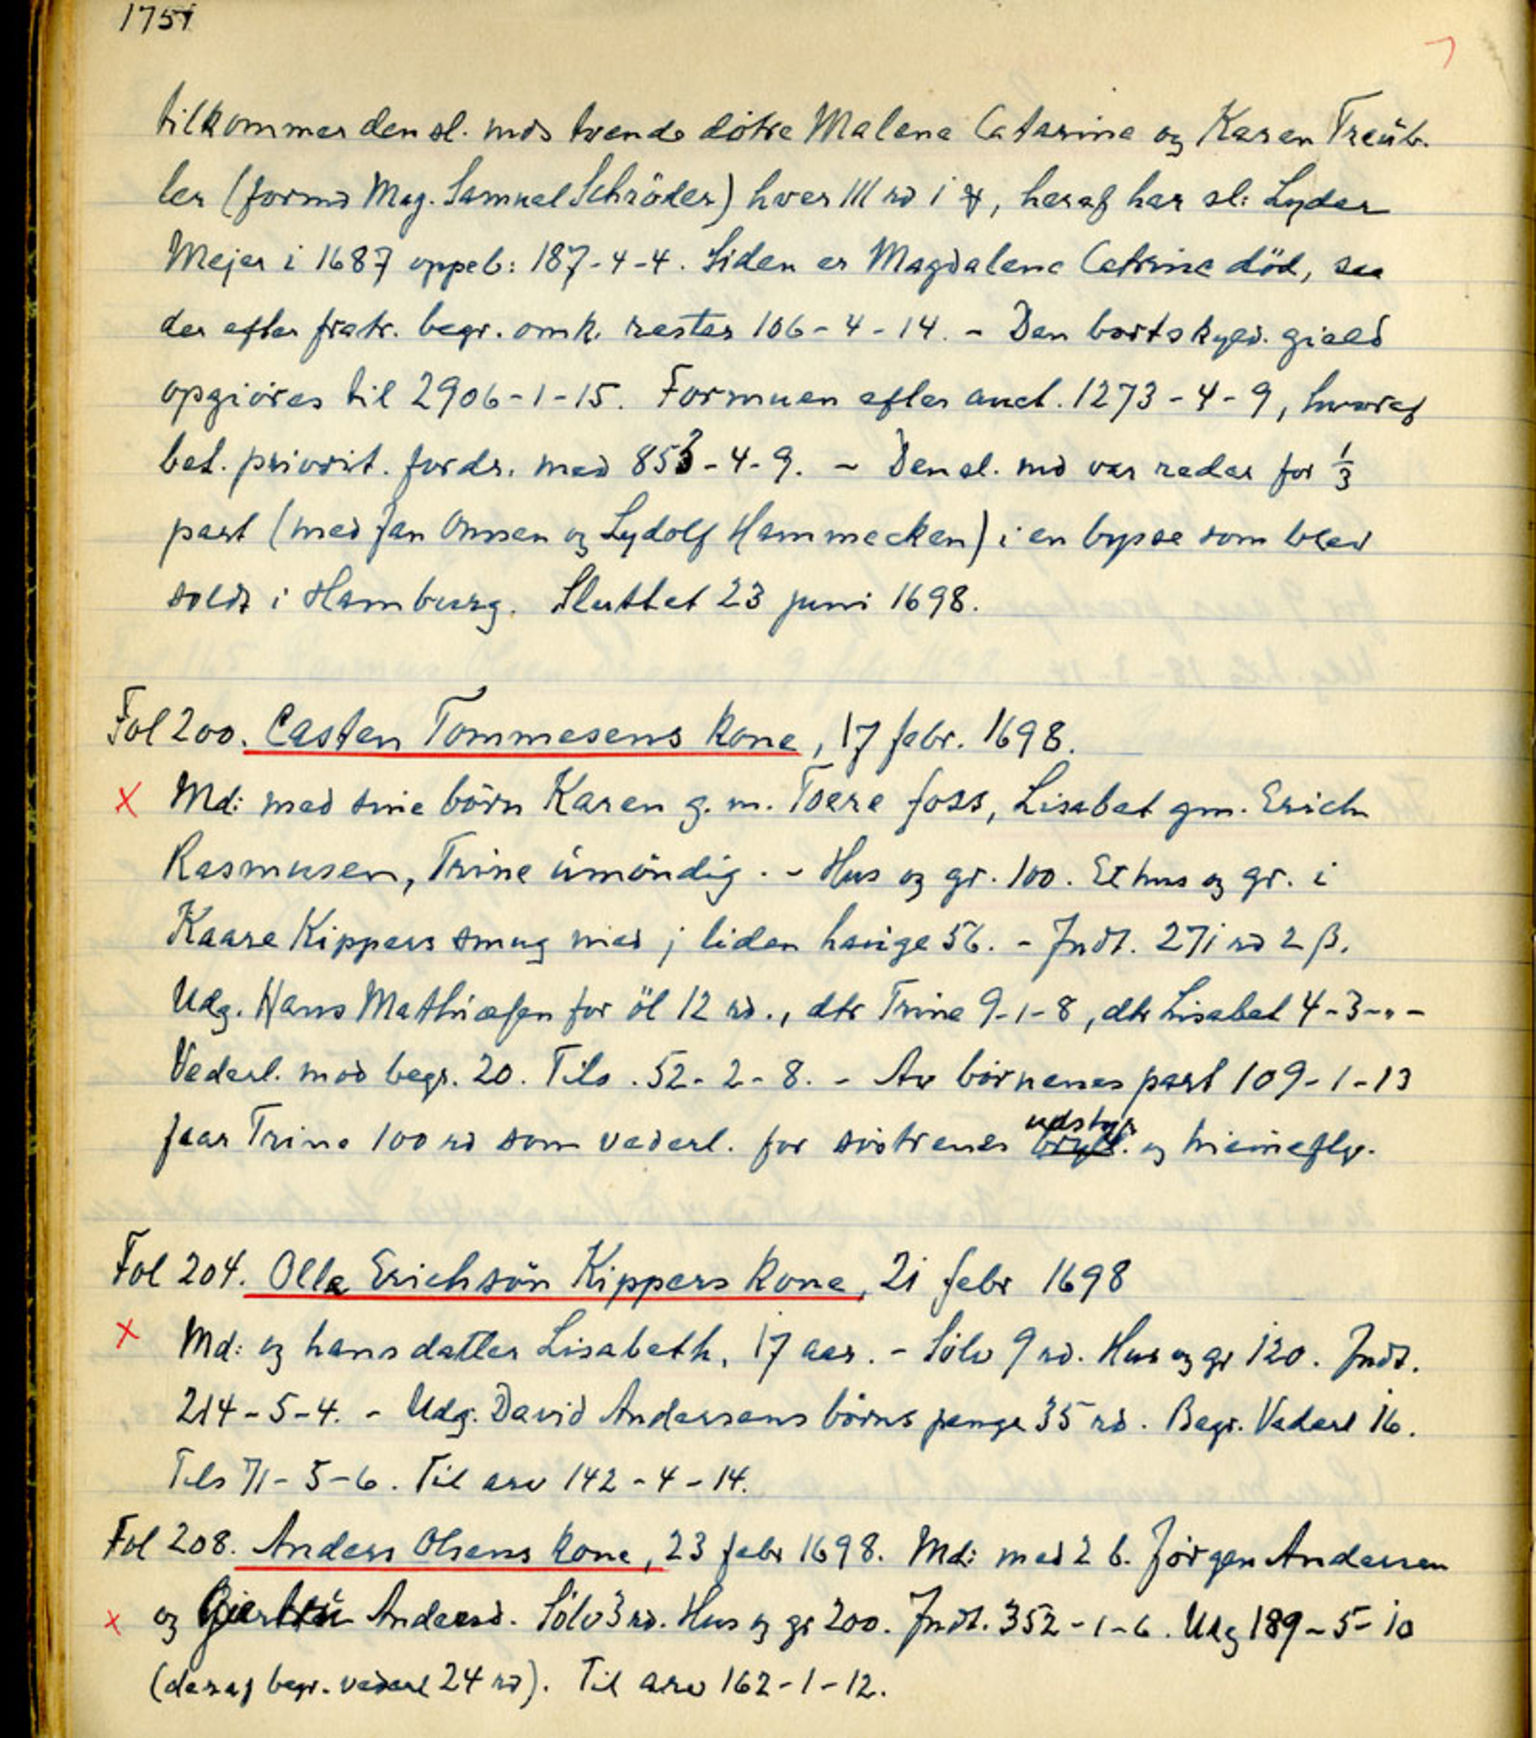 1751
tilkommer den sl. mds tvende döttre Malene Catarine og Karen Treüb-
ler (formd Mag. Samuel Schröder) hver 111 rd i , heraf har sl: Lyder
Mejer i 1687 oppeb: 187-4-4. Siden er Magdalene Catrine död, saa
der efter fratr. begr. omk. rester 106-4-14. - Den bortskyld. gield
opgiöres til 2906-1-15. Formuen efter auct. 1273-4-9, hvoraf
bet. priorit. fordr. med 853-4-9. - Den sl. md var reder for 1/3
part (med Jan Onsen og Lydolf Hammecken) i en bysse som blev
soldt i Hamburg. Sluttet 23 juni 1698.
Fol 200. Casten Tommesens kone, 17 febr. 1698.
x Md: med sine börn Karen g. m. Toere foss, Lisabet gm. Erich
Rasmusen, Trine ümöndig. - Hus og gr. 100. Et hus og gr. i
Kaare Kippers smug med j liden hauge 56. - Indt. 27i rd 2 β.
Udg. Hans Mathiæsen for öl 12 rd., dtr Trine 9-1-8, dtr Lisabet 4-3-"-
Vederl. mod begr. 20. Tils. 52-2-8. - Av börnenes part 109-1-13
faar Trine 100 rd som vederl. for söstrenes udstyr og
Fol 204. Olle Erichsön Kippers kone, 2i febr 1698
x Md: og hans datter Lisabeth, 17 aar. - Sölv 9 rd. Hus og gr 120. Indt.
214-5-4. - Udg. David Andersens börns penge 35 rd. Begr. Vederl 16.
Tils 71-5-6. Til arv 142-4-14.
Fol 208. Anders Olsens kone, 23 febr 1698. Md: med 2 b. Jörgen Andersen
x og Giertrü Andersd. Sölv 3 rd. Hus og gr 200. Indt. 352-1-6. Udg 189-5-10
(deraf begr. vederl 24 rd). Til arv 162-1-12.